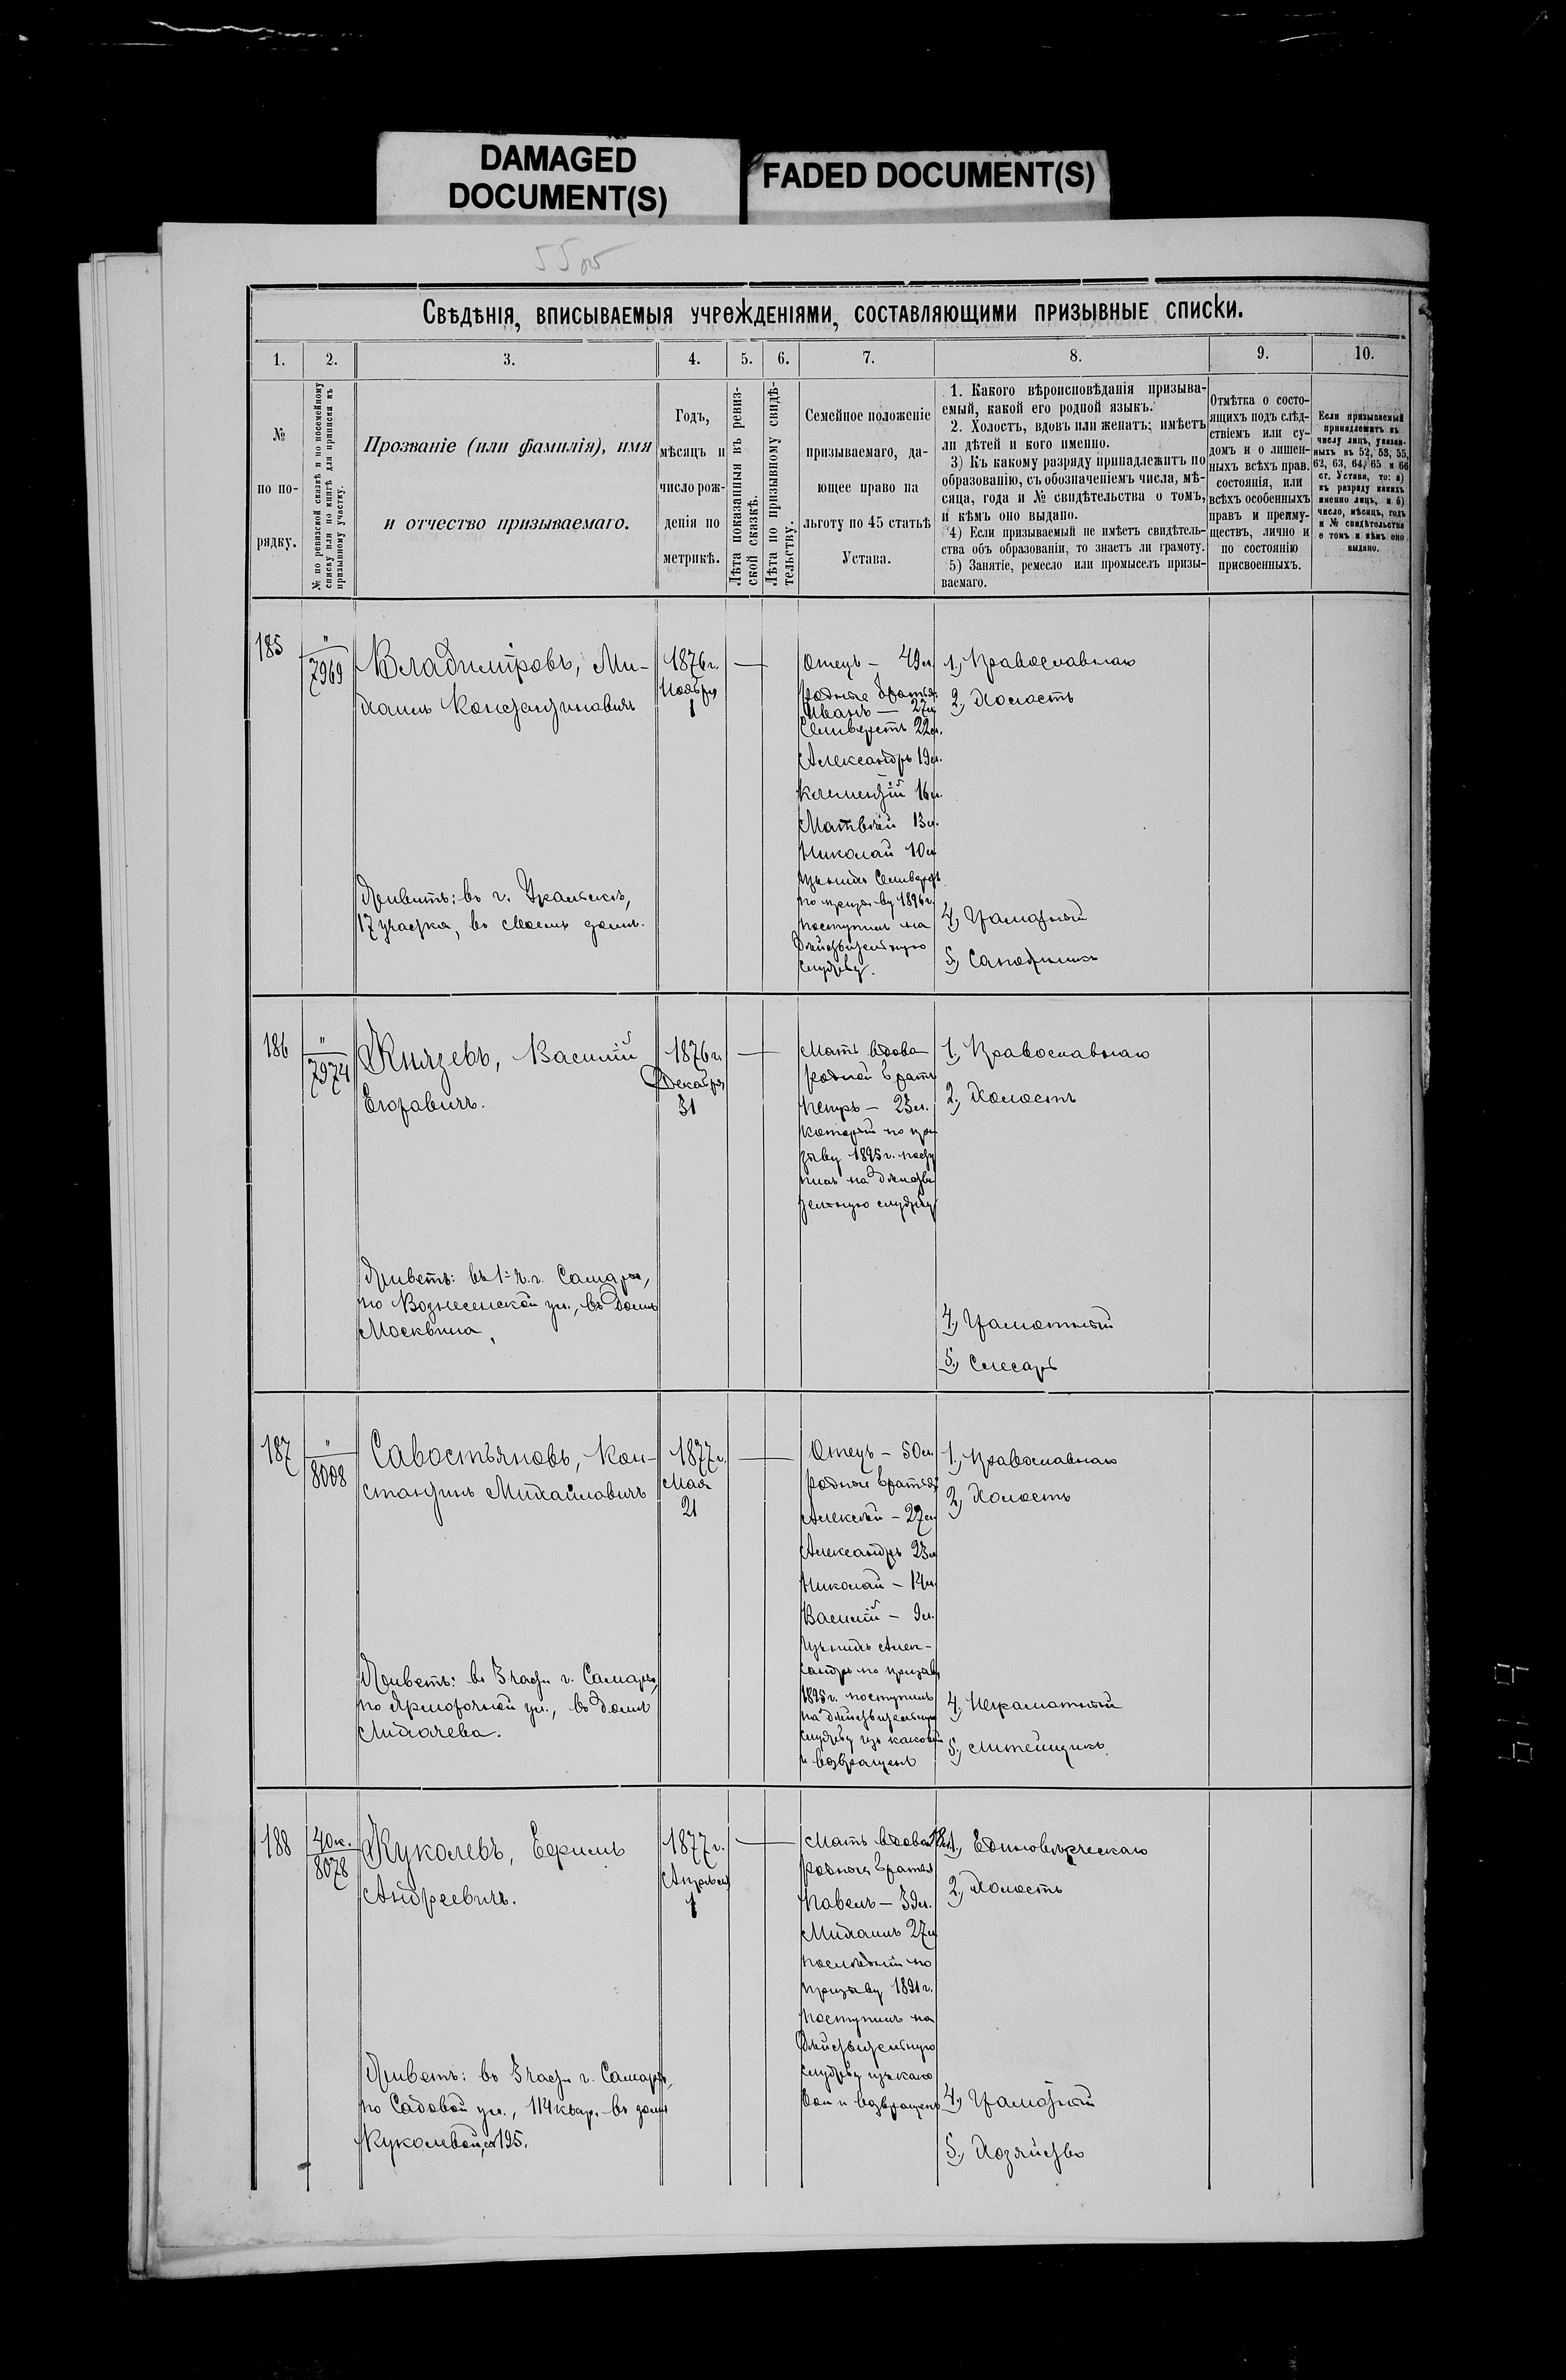 DAMAGED
DOCUMENT(S)
FADED DOCUMENT(S)
55 об
Свѣдѣнія, вписываемыя учрежденіями, составляющими призывные списки.
1.
2.
3.
4.
5.
6.
7.
8.
9.
10.
№
по по-
рядку.
№ по ревизской сказкѣ и по посемейному
списку или по книгѣ для приписки къ
призывному участку.
Прозваніе (или фамилія), имя
и отчество призываемаго.
Годъ,
мѣсяцъ и
число рож-
денія по
метрикѣ.
Лѣта показанныя въ ревиз-
ской сказкѣ.
Лѣта по призывному свидѣ-
тельству.
Семейное положеніе
призываемаго, да-
ющее право на
льготу по 45 статьѣ
Устава.
1. Какого вѣроисповѣданія призыва-
емый, какой его родной языкъ.
2. Холостъ, вдовъ или женатъ; имѣетъ
ли дѣтей и кого именно.
3) Къ какому разряду принадлежитъ по
образованію, съ обозначеніемъ числа, мѣ-
сяца, года и № свидѣтельства о томъ,
и кѣмъ оно выдано.
4) Если призываемый не имѣетъ свидѣтель-
ства объ образованіи, то знаетъ ли грамоту.
5) Занятіе, ремесло или промыселъ призы-
ваемаго.
Отмѣтка о состо-
ящихъ подъ слѣд-
ствіемъ или су-
домъ и о лишен-
ныхъ всѣхъ прав.
состоянія, или
всѣхъ особенныхъ
правъ и преиму-
ществъ, лично и
по состоянію
присвоенныхъ.
Если призываемый
принадлежитъ къ
числу лицъ, указан-
ныхъ въ 52, 53, 55,
62, 63, 64, 65 и 66
ст. Устава, то: а)
къ разряду какихъ
именно лицъ, и б)
число, мѣсяцъ, годъ
и № свидѣтельства
о томъ и кѣмъ оно
выдано.
185
"
7969
Владиміровъ, Ми-
хаилъ Константиновичъ
Живетъ: въ г. Уральскѣ,
17 участка, въ своемъ домѣ.
1876 г.
Ноября
1
Отецъ — 49 л.
родные братья:
Иванъ — 27 л.
Селиверстъ 22 л.
Александръ 19 л.
Климентій 16 л.
Матвѣй 13 л.
Николай 10 л.
Изъ нихъ Селиверстъ
по призыву 1896 г.
поступилъ на
дѣйствительную
службу.
1., Православнаго
2., Холостъ
4., Грамотный
5., Сапожникъ
186
"
7974
Князевъ, Василій
Егоровичъ.
Живетъ: въ 1-ч. г. Самары,
по Вознесенской ул., въ домѣ
Москвина,
1876 г.
Декабря
31
Мать вдова
родной братъ
Петръ — 23 л.
который по при
зыву 1895 г. посту
пилъ на дѣйстви
тельную службу
1., Православнаго
2., Холостъ
4., Грамотный
5., Слесарь
187
"
8008
Савостьяновъ, Кон-
стантинъ Михайловичъ
Живетъ: въ 3 части г. Самары,
по Ярморочной ул., въ домѣ
Лихачева.
1877 г.
Мая
21
Отецъ — 50 л.
родные братья
Алексѣй — 27 л.
Александръ 23 л.
Николай — 14 л.
Василій — 9 л.
Изъ нихъ Алек-
сандръ по призыву
1895 г. поступилъ
на дѣйствительную
службу изъ каковой
и возвращенъ
1., Православнаго
2., Холостъ
4., Неграмотный
5., Литейщикъ.
188
40 к.
8078
Куколевъ, Ефимъ
Андреевичъ.
Живетъ: въ 3 части г. Самары,
по Садовой ул., 114 квар. въ домѣ
Куколевой, № 195.
1877 г.
Апрѣля
1
Мать вдова
родные братья
Павелъ — 39 л.
Михаилъ 27 л.
послѣдній по
призыву 1891 г.
поступилъ на
дѣйствительную
службу изъ како
вой и возвращенъ
1., Единовѣрческаго
2., Холостъ
4., Грамотный
5., Хозяйство